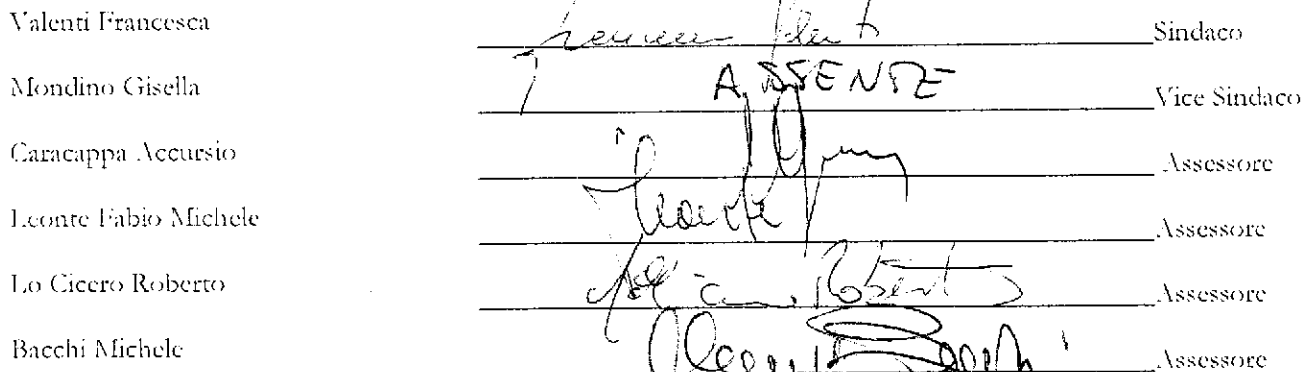 Valenti Francesca Sindaco
Mondino Gisella ASSENTE Vice Sindaco
Caracappa Accursio Assessore
Leonte Fabio Michele Assessore
Lo Cicero Roberto Roberto Assessore
Bacchi Michele Assessore